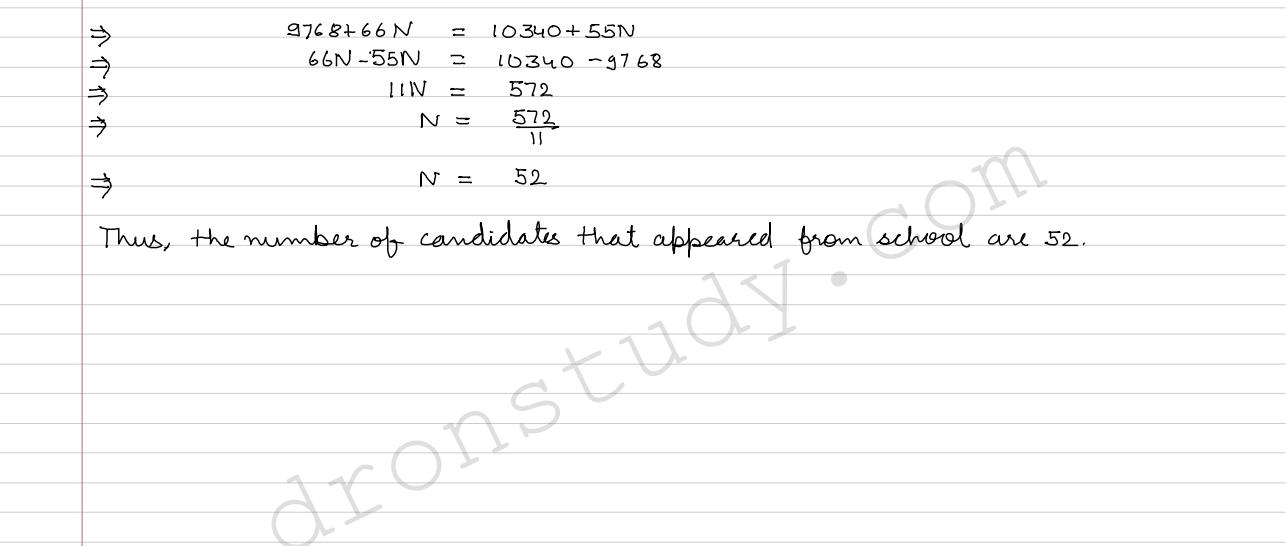 ⇒ 9768+66N = 10340+55N
⇒ 66N-55N = 10340-9768
⇒ 11N = 572
⇒ N = 572/11
⇒ N = 52
Thus, the number of candidates that appeared from school are 52.
dronstudy.com